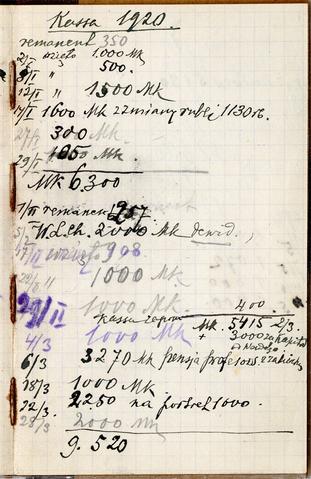 Kassa 1920.
remanent 350
2/I wzięto 1.000 Mk
8/I " 500.
12/I " 1500 Mk
17/I 1600 Mk zzmiany rubli 1130 rb.
27/I 300 Mk
29/I 1050 Mk.
Mk 6.300
1/II remanent 957.
5/II W.L.Ch. 2000 Mk
17/II wzięto 908
24/II " 1000 Mk.
29/II 1000 Mk. 400
Kassa Mk 5415 2/3.
4/3 1000 Mk + 3000
6/3 3270 Mk pensja
15/3 1000 Mk.
22/3. 2250 na portret 1000.
28/3 2000 Mk
9.520